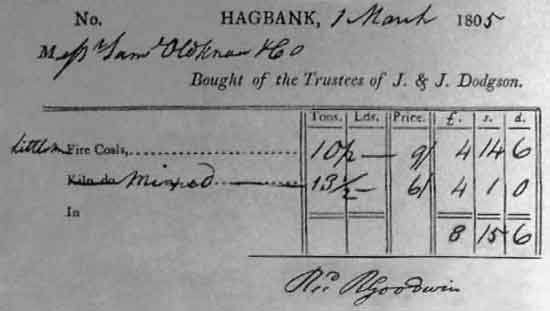 No. HAGBANK, 1 March 1805
Messrs Saml Oldknow & Co
Bought of the Trustees of J. & J. Dodgson.
Tons. Lds. Price. £. s. d.
Fire Coals, 10½ — 9/ 4 14 6
Kiln do Mixed 13½ — 6/ 4 1 0
In
8 15 6
Recd RGoodwin